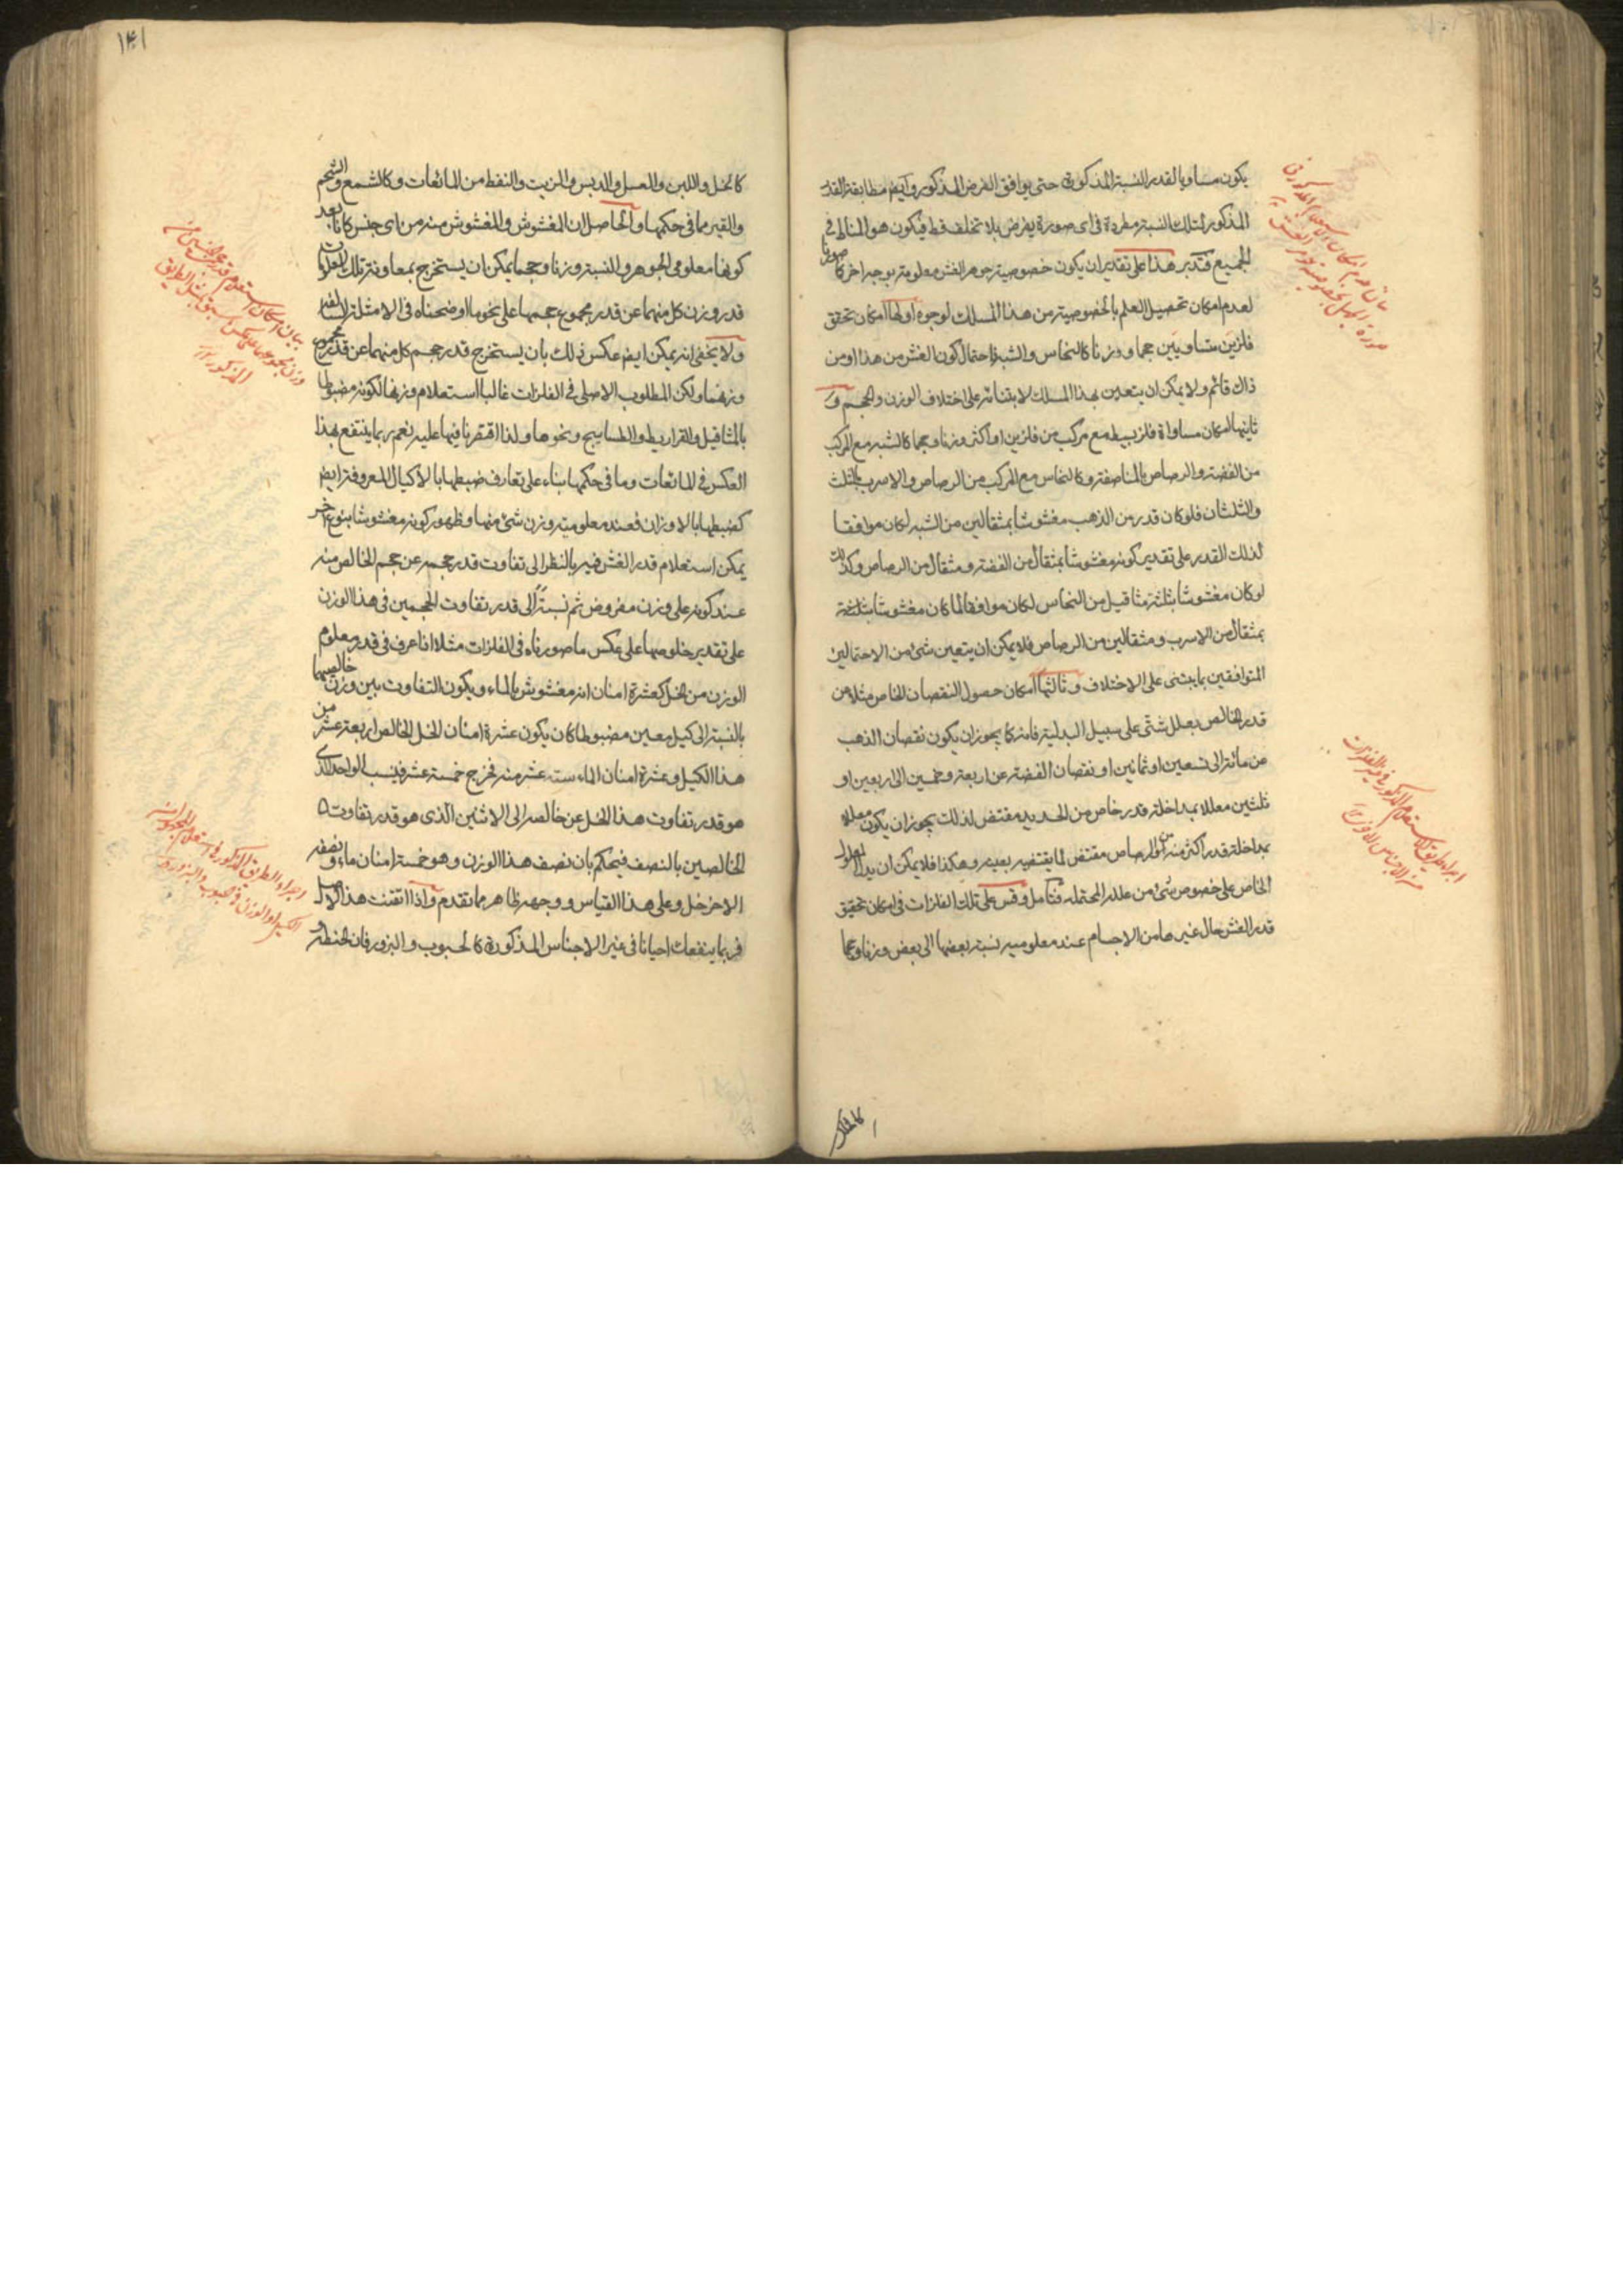 يكون مساويا لقدر النسبة المذكورة حتى يوافق الفرض المذكور وايض مطابقة القدر
المذكور لتلك النسبة مطردة في اى صورة يفرض بلا تخلف قط فيكون هو المناط في
الجميع فتدبر هذا على تقدير ان يكون خصوصية جوهر الغش معلومة بوجه اخر كما صورنا
لعدم امكان تحصيل العلم بالخصوصية من هذا المسلك لوجوه اولها امكان تحقق
فلزين متساويين حجما ووزنا كالنحاس والشبه فاحتمال كون الغش من هذا او من
ذاك قائم ولا يمكن ان يتعين بهذا المسلك لابتنائه على اختلاف الوزن والحجم و
ثانيها امكان مساواة فلز بسيط مع مركب من فلزين او اكثر وزنا وحجما كالشبه مع المركب
من الفضة والرصاص بالمناصفة وكالنحاس مع المركب من الرصاص والاسرب بالثلث
والثلثان فلو كان قدر من الذهب مغشوشا بمثقالين من الشبه لكان موافقا
لذلك القدر على تقدير كونه مغشوشا بمثقال من الفضة ومثقال من الرصاص وكذلك
لو كان مغشوشا بثلثة مثاقيل من النحاس لكان موافقا لما كان مغشوشا بثلثة
بمثقال من الاسرب ومثقالين من الرصاص فلا يمكن ان يتعين شئ من الاحتمالين
المتوافقين بما يبتنى على الاختلاف وثالثها امكان حصول النقصان الخاص مثلا من
قدر الخالص بعلل شتى على سبيل البدلية فانه كما يجوز ان يكون نقصان الذهب
من مائة الى تسعين او ثمانين او نقصان الفضة عن اربعة وخمسين الى اربعين او
ثلثين معللا بمداخلة قدر خاص من الحديد مقتض لذلك يجوز ان يكون معللا
بمداخلة قدر اكثر منه من الرصاص مقتض لما يقتضيه بعينه وهكذا فلا يمكن ان يدل المعلول
الخاص على خصوص شئ من علله المحتملة فتأمل وقس على تلك الفلزات في امكان تحقيق
قدر الغش حال غيرها من الاجسام عند معلومية نسبة بعضها الى بعض وزنا وحجما
كالخل واللبن والعسل والدبس والزيت والنفط من المائعات وكالشمع والشحم
والقير مما في حكمها والحاصل ان المغشوش والمغشوش منه من اى جنس كانا بعد
كونهما معلومى الجوهر والنسبة وزنا وحجما يمكن ان يستخرج بمعاونة تلك المعلومات
قدر وزن كل منهما عن قدر مجموع حجمها على نحو ما اوضحناه في الامثلة السالفة
ولا يخفى انه يمكن ايض عكس ذلك بان يستخرج قدر حجم كل منهما عن قدر مجموع
وزنهما ولكن المطلوب الاصلى في الفلزات غالبا استعلام وزنها لكونه مضبوطا
بالمثاقيل والقراريط والطساسيج ونحوها ولذا اقتصرنا فيها عليه نعم ربما ينتفع بهذا
العكس في المائعات وما في حكمها بناء على تعارف ضبطها بالاكيال المعروفة ايض
كضبطها بالاوزان فعند معلومية وزن شئ منها وظهور كونه مغشوشا بنوع اخر
يمكن استعلام قدر الغش فيه بالنظر الى تفاوت قدر حجمه عن حجم الخالص منه
عند كونه على وزن مفروض ثم نسبته الى قدر تفاوت الحجمين في هذا الوزن
على تقدير خلوصها على عكس ما صورناه في الفلزات مثلا اذا عرف في قدر معلوم
الوزن من الخل كعشرة امنان انه مغشوش بالماء ويكون التفاوت بين وزن خالصيهما
بالنسبة الى كيل معين مضبوطا كان يكون عشرة امنان الخل الخالص اربعة عشر من
هذا الكيل وعشرة امنان الماء ستة عشر منه فخرج خمسة عشر فينسب الواحد الذى
هو قدر تفاوت هذا الخل عن خالصه الى الاثنين الذى هو قدر تفاوت
الخالصين بالنصف فيحكم بان نصف هذا الوزن وهو خمسة امنان ماء ونصفه
الاخر خل وعلى هذا القياس ووجهه ظاهر مما تقدم واذا اتقنت هذا الاصل
فربما ينفعك احيانا في غير الاجناس المذكورة كالحبوب والبزور فان الحنطة و
١٤١